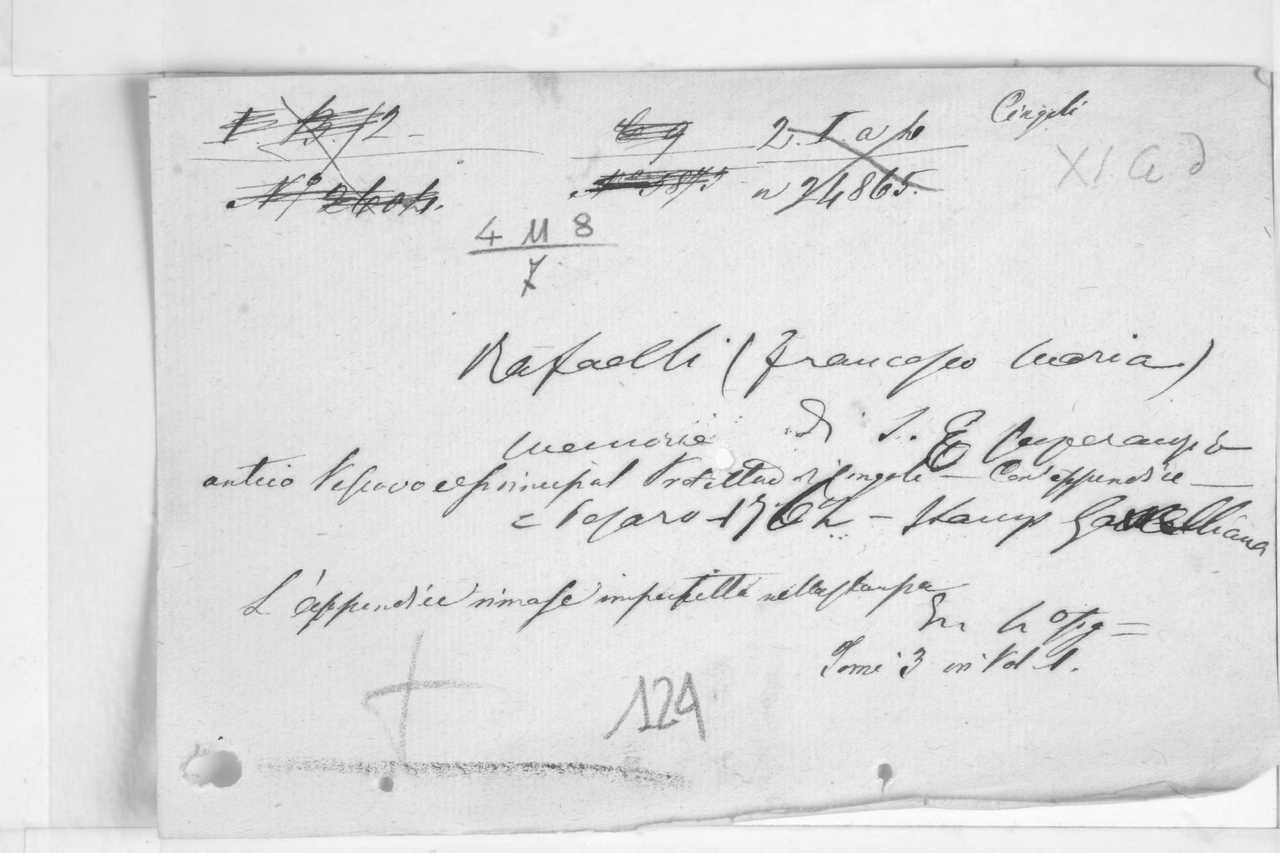 Cingoli
2. I. a
n 24865.
4 M 8
7
Rafaelli (Francesco Maria)
Memorie di S. Esuperanzio
antico Vescovo e principal Protettore di Cingoli — Con appendice —
= Pesaro 1762 — Stamp Gavelliana
L'appendice rimase imperfetta nella stampa
In 4° fig =
Tomi 3 in Vol 1.
124